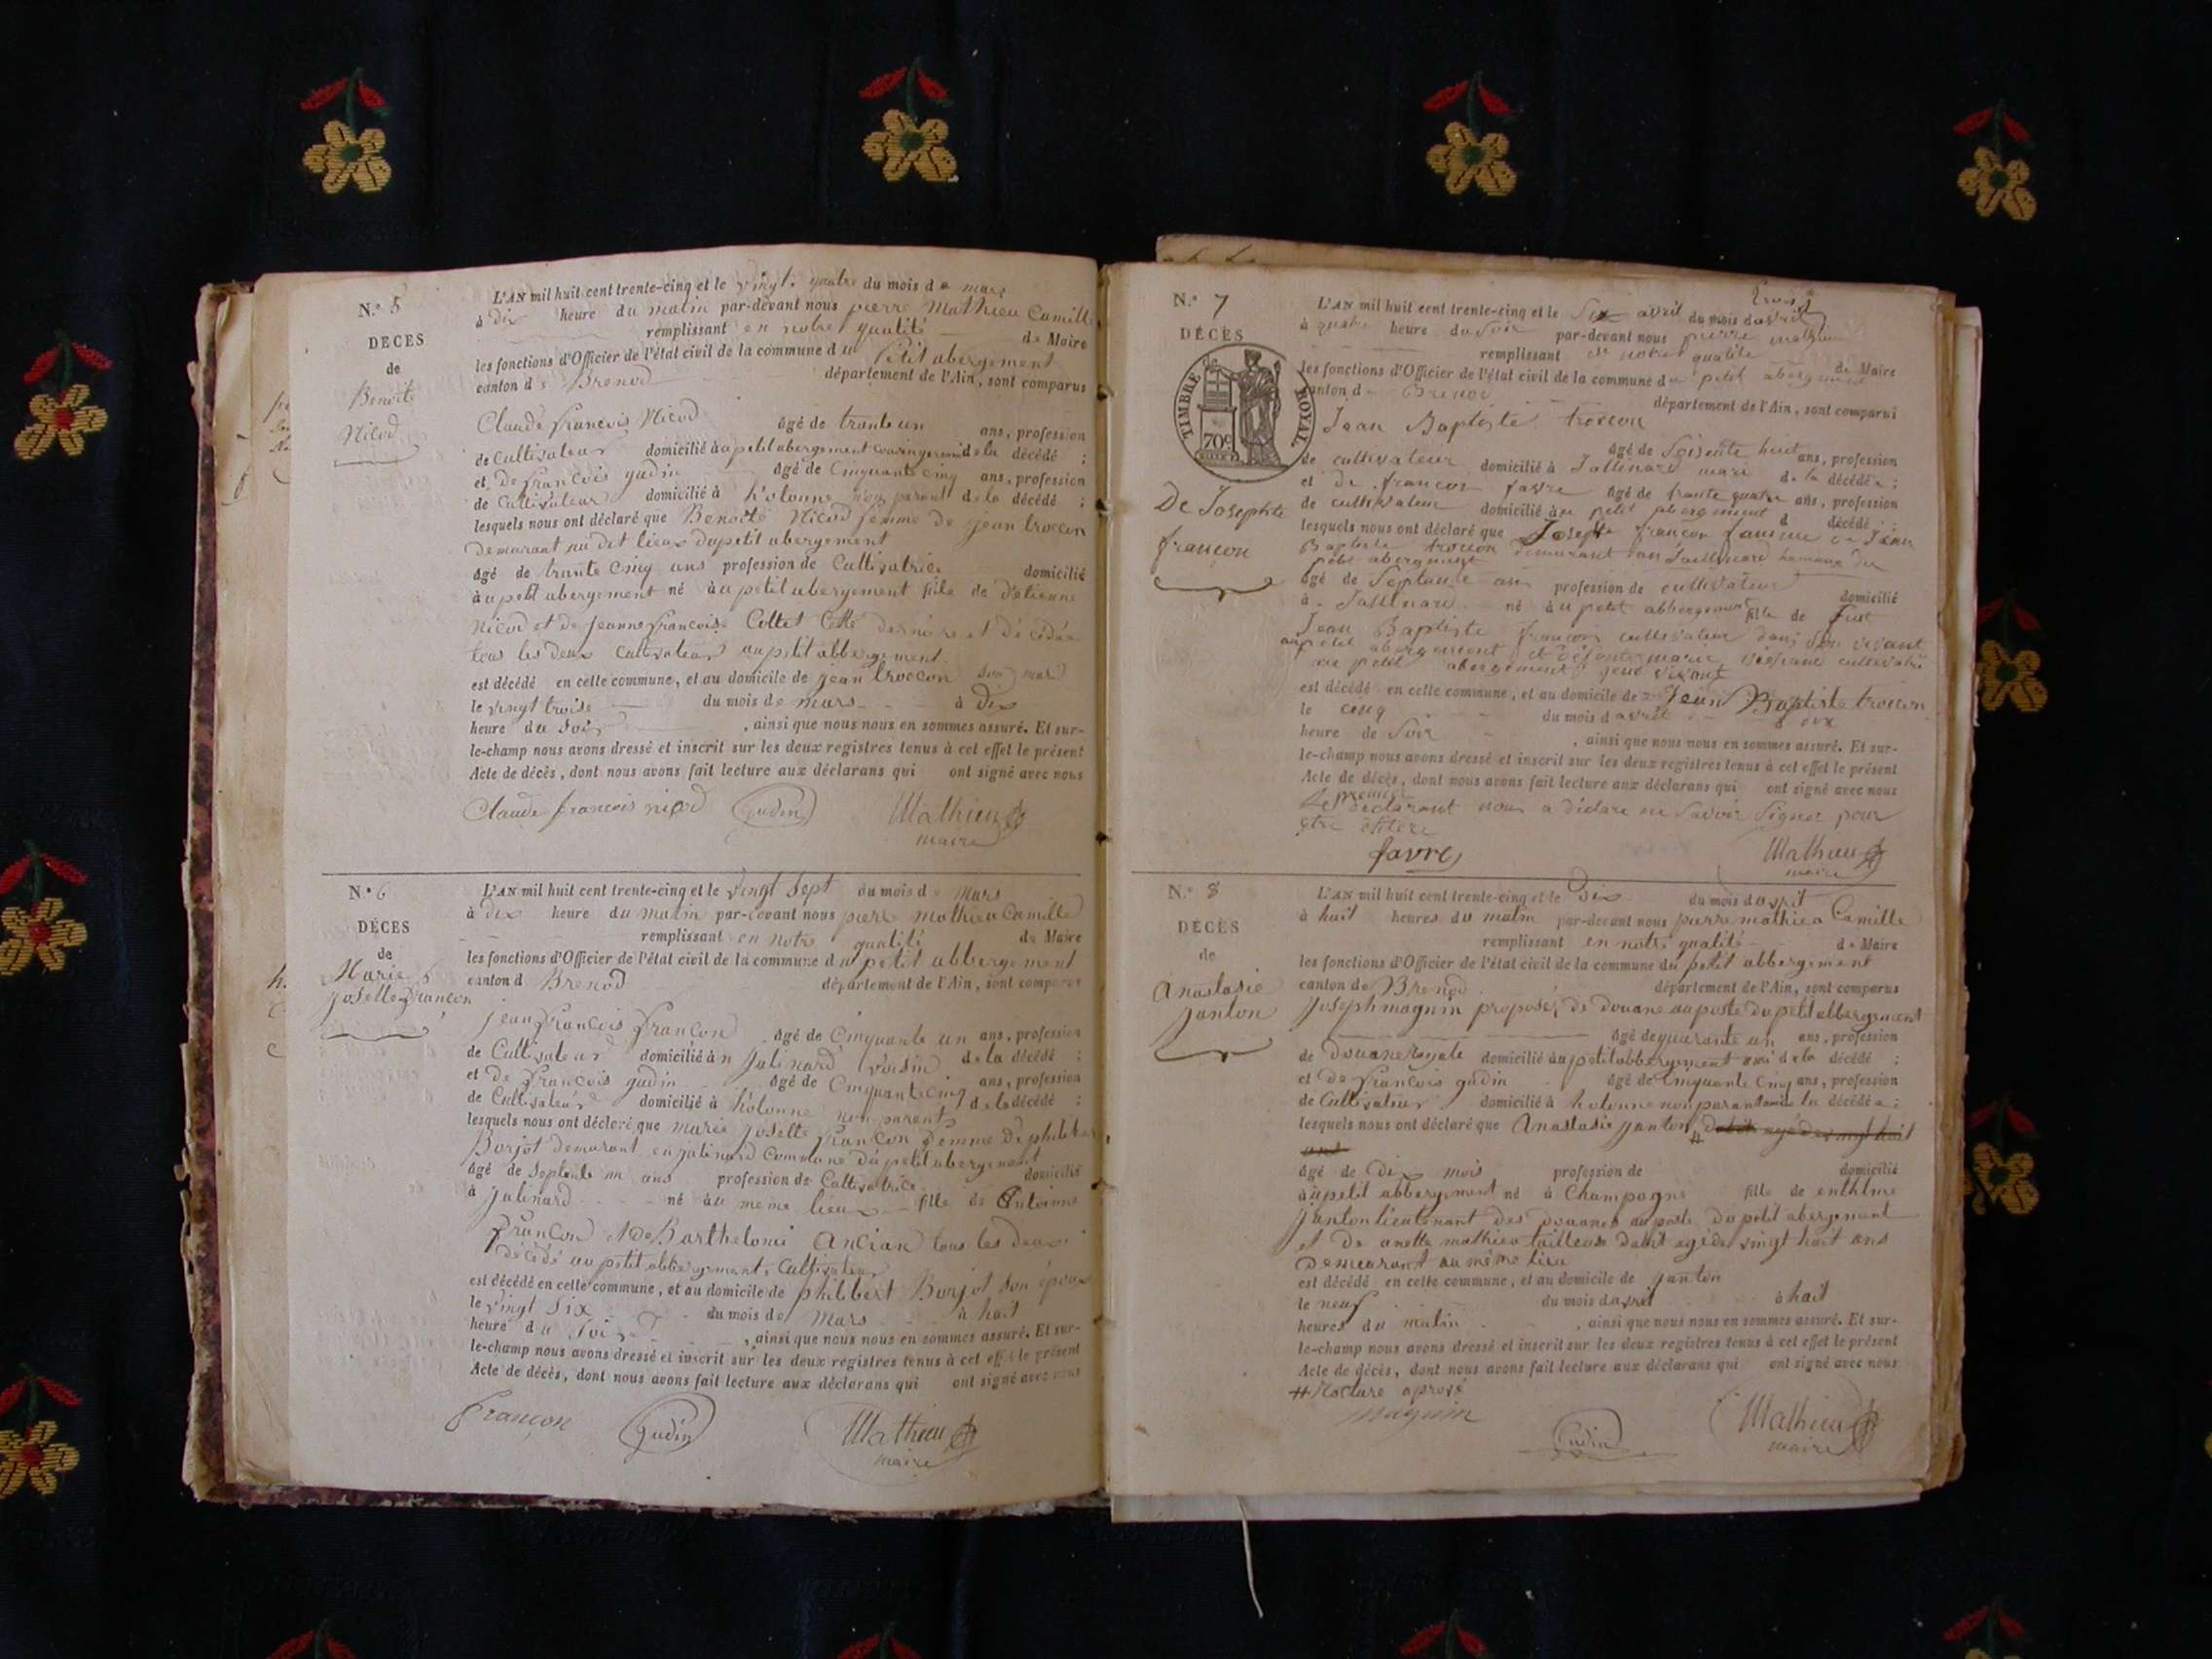 N.° 5
DECES
de
Benoite
Nicod
L'AN mil huit cent trente-cinq et le vingt quatre du mois de mars
à dix heure du matin par-devant nous pierre Mathieu Camille
remplissant en notre qualité de Maire
les fonctions d'Officier de l'état civil de la commune du Petit abergement
canton de Brenod département de l'Ain, sont comparus
Claude françois Nicod âgé de trante un ans, profession
de Cultivateur domicilié à au petit abergement de la décédé ;
et de françois gudin âgé de Cinquante cinq ans, profession
de Cultivateur domicilié à h'otonne non parent de la décédé ;
lesquels nous ont déclaré que Benoite Nicod femme de jean troccon
demurant au dit lieux du petit abergement
âgé de trante Cinq ans profession de Cultivatrice domicilié
à au petit abergement né à au petit abergement file de d'étienne
Nicod et de jeanne françoise Collet Cette derniere et décédée
tous les deux Cultivateur au petit abbergement
est décédé en cette commune, et au domicile de jean troccon son mari
le vingt trois du mois de mars à dix
heure du soir , ainsi que nous nous en sommes assuré. Et sur-
le-champ nous avons dressé et inscrit sur les deux registres tenus à cet effet le présent
Acte de décès, dont nous avons fait lecture aux déclarans qui ont signé avec nous
Claude francois nicod gudin Mathieu
maire
N.° 6
DÉCES
de
Marie
joselte françon
L'AN mil huit cent trente-cinq et le vingt sept du mois de mars
à dix heure du matin par-devant nous pierre mathieu Camille
remplissant en notre qualité de Maire
les fonctions d'Officier de l'état civil de la commune du petit abbergement
canton d Brenod département de l'Ain, sont comparus
jean françois françon âgé de Cinquante un ans, profession
de Cultivateur domicilié à n jalinard voisin de la décédé ;
et de françois gudin âgé de Cinquante cinq ans, profession
de Cultivateur domicilié à h'otonne non parent de la décédé ;
lesquels nous ont déclaré que marie joselte françon femme de philibert
Borjot demurant en jalinard Commune du petit abergement
âgé de Septante ans profession de Cultivatrice domicilié
à jalinard né au meme lieux fille de Antoine
françon et de Barthelomi Ancian tous les deux
décédé au petit abbergement, Cultivateur
est décédé en cette commune, et au domicile de philibert Borjot son époux
le vingt six du mois de Mars à huit
heure du soir , ainsi que nous nous en sommes assuré. Et sur-
le-champ nous avons dressé et inscrit sur les deux registres tenus à cet effet le présent
Acte de décès, dont nous avons fait lecture aux déclarans qui ont signé avec nous
françon gudin Mathieu
maire
N.° 7
DÉCÈS
de
TIMBRE ROYAL
70c
De Josephte
françon
L'AN mil huit cent trente-cinq et le Six avril du mois d'avril
à quatre heure du soir par-devant nous pierre mathieu
remplissant en notre qualité de Maire
les fonctions d'Officier de l'état civil de la commune du petit abergement
canton de Brenod département de l'Ain, sont comparus
Jean Baptiste troccon
âgé de Soisente huit ans, profession
de cultivateur domicilié à Jallinard mari de la décédée ;
et de françois favre âgé de trante quatre ans, profession
de cultivateur domicilié à au petit abergement décédé ;
lesquels nous ont déclaré que Josephte françon famme de Jean
Baptiste troccon demurant hamaux du
petit abergement
âgé de Septante ans profession de cultivateur domicilié
à Jallinard né à au petit abbergement fille de feue
Jean Baptiste françon cultivateur dans son vivant
au petit abergement et
au petit abergement
est décédé en cette commune, et au domicile de Jean Baptiste troccon
le cinq du mois d'avril à dix
heure de soir , ainsi que nous nous en sommes assuré. Et sur-
le-champ nous avons dressé et inscrit sur les deux registres tenus à cet effet le présent
Acte de décès, dont nous avons fait lecture aux déclarans qui ont signé avec nous
Le premier déclarant nous a déclaré ne savoir signer pour
être
favre Mathieu
maire
N.° 8
DÉCÈS
de
Anastasie
janton
L'AN mil huit cent trente-cinq et le dix du mois d'avril
à huit heures du matin par-devant nous pierre mathieu Camille
remplissant en notre qualité de Maire
les fonctions d'Officier de l'état civil de la commune du petit abbergement
canton de Brenod département de l'Ain, sont comparus
joseph magnin proposé, de douane au poste du petit abbergement
âgé de quarante un ans, profession
de douane royale domicilié à au petit abbergement ami de la décédé ;
et de françois gudin âgé de Cinquante Cinq ans, profession
de Cultivateur domicilié à hotonne non parant de la décédée ;
lesquels nous ont déclaré que Anastasie janton
âgé de dix mois profession de domicilié
à au petit abbergement né à Champagne fille de enthlme
janton lieutenant des douanes au poste du petit abergement
et de anette mathieu tailleuse agé de vingt huit ans
Demeurant au même lieu
est décédé en cette commune, et au domicile de janton
le neuf du mois d'avril à huit
heures du matin , ainsi que nous nous en sommes assuré. Et sur-
le-champ nous avons dressé et inscrit sur les deux registres tenus à cet effet le présent
Acte de décès, dont nous avons fait lecture aux déclarans qui ont signé avec nous
magnin gudin Mathieu
maire